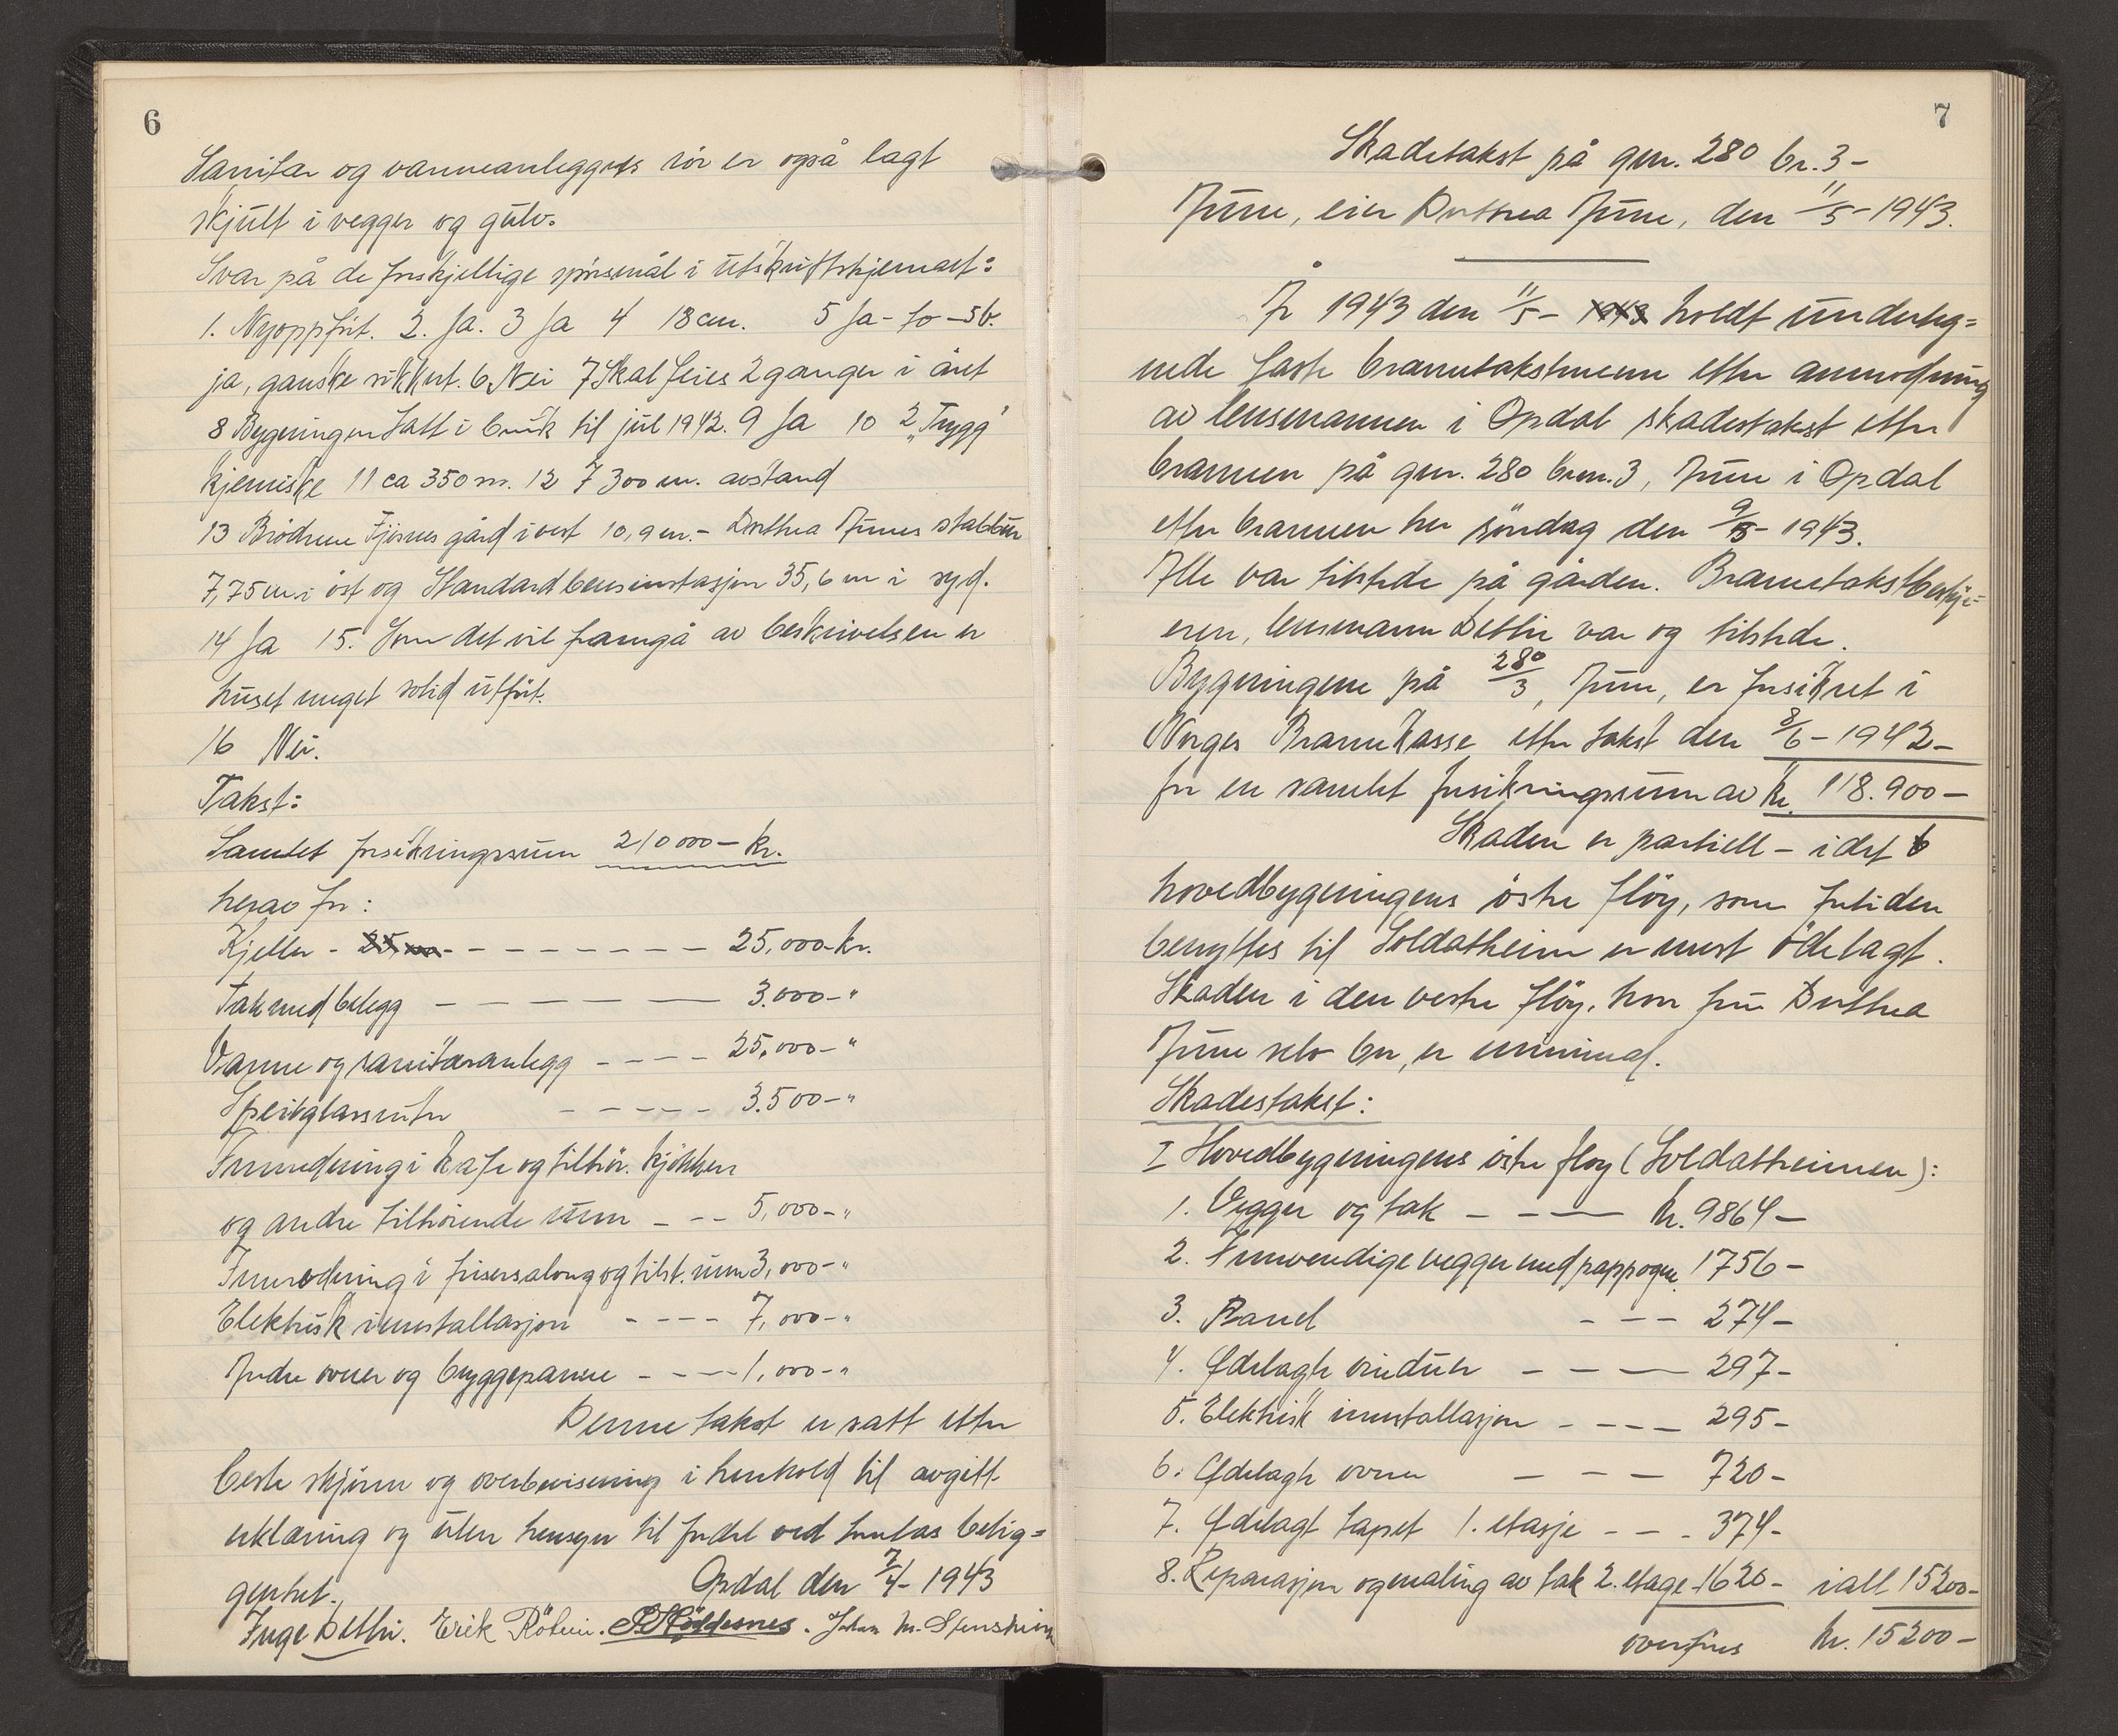 6
Sanitær og varmeanleggets rör er også lagt
skjult i vegger og gulv.
Svar på de forskjellige spörsmål i utskriftskjemaet:
1. Nyoppfört. 2. Ja. 3 Ja 4 18 cm. 5 Ja - to - st.
ja, ganske sikkert. 6 Nei 7 Skal feies 2 ganger i året
8 Bygningen tatt i bruk til jul 1942. 9 Ja 10 2 „Trygg"
kjemiske 11 ca 350 m. 12 7 300 m. avstand
13 Brödrene Fjösnes gård i vest 10,9 m. - Dorthea Aunes stabbur
7,75 m. i öst og Standard bensinstasjon 35,6 m i syd.
14 Ja 15. Som det vil framgå av beskrivelsen er
huset meget solid utfört.
16 Nei.
Takst:
Samlet forsikringssum 210000 - kr.
herav for:
Kjeller - - - - - - - - 25,000 - kr.
Tak med belegg - - - - - - 3.000 - "
Varme og sanitæranlegg - - - - 25,000 - "
Speilglassruter - - - - - 3.500 - "
Innredning i kafe og tilhör. kjökken
og andre tilhörende rum - - - 5,000 - "
Innredning i frisersalong og tilst. rum 3,000 - "
Elektrisk innstallasjon - - - - 7,000 - "
Andre ovner og bryggepanne - - - - 1,000 - "
Denne takst er satt etter
beste skjönn og overbevisning i henhold til avgitt
erklæring og uten hensyn til fordel ved huntas belig=
genhet.
Opdal den 7/4 - 1943
Inge Dethi. Erik Röhein. Höddesnes. Johan M. Stenshein
7
Skadetakst på gnr. 280 br. 3 -
Aune, eier Dorthea Aune, den 11/5 - 1943.
År 1943 den 11/5 - 1943 holdt underteg=
nede faste branntakstmenn etter anmodning
av lensmannen i Opdal skadestakst etter
brannen på gnr. 280 brnr. 3, Aune i Opdal
etter brannen her söndag den 9/5 - 1943.
Alle var tilstede på gården. Branntakstbestyr-
eren, lensmann Dethi var og tilstede.
Bygningene på 280/3, Aune, er forsikret i
Norges Brannkasse etter takst den 8/6 - 1942 -
for en samlet forsikringssum av kr. 118.900 -
Skaden er partiell - idet
hovedbygningens östre flöy, som fortiden
benyttes til Soldatheim er mest ödelagt.
Skaden i den vestre flöy, hvor fru Dorthea
Aune selv bor, er minimal.
Skadestakst:
I Hovedbygningens östre flöy (Soldatheimen):
1. Vegger og tak - - - - kr. 9864 -
2. Innvendige vegger med papp ogm. 1756 -
3. Panel - - - 274 -
4. Ödelagte vinduer - - - 297 -
5. Elektrisk innstallasjon - - - - 295 -
6. Ödelagte ovner - - - 720 -
7. Ödelagt tapet 1. etasje - - - 374 -
8. Reparasjon og maling av tak 2. etage 1620 - ialt 15200 -
overföres kr. 15200 -